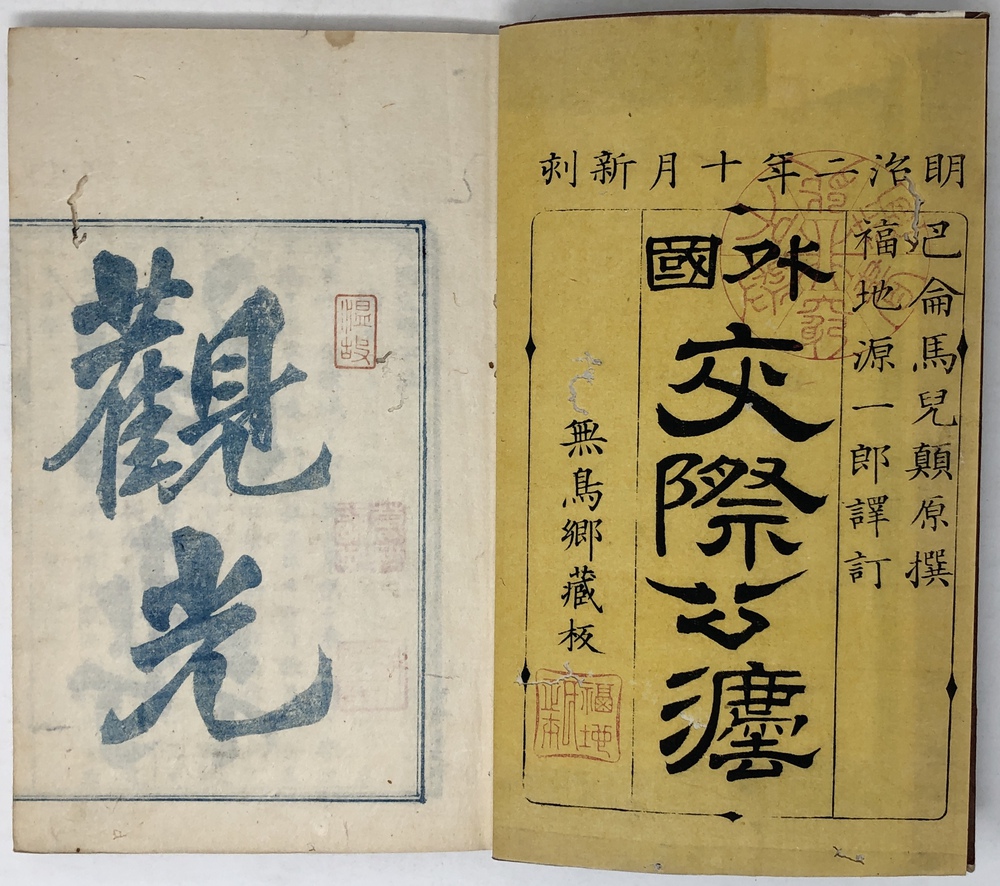 明治二年十月新刻
巴侖馬兒顛原撰
福地源一郎譯訂
外國
交際公灋
無鳥鄉藏板
温故
觀光